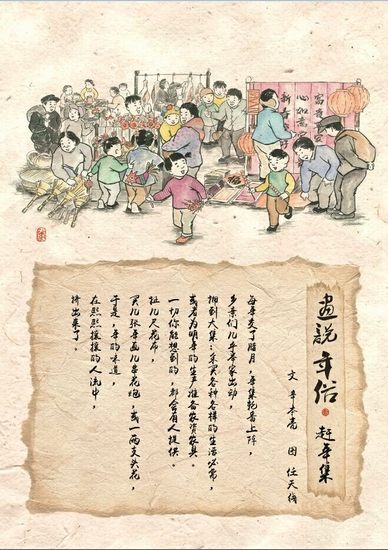 畫說年俗 赶年集
文 本亮 图 任天
每年了腊月，年集轮番上阵，
乡亲们几乎举家出动，
拥到大集：采买各种各样的生活必需，
或者为明年的生产准备农资农具。
一切你能想到的，都会有人提供。
扯几尺花布，
买几张年画几串花炮，或一两支头花，
于是，年的味道，
在熙熙攘攘的人流中，
挤出来了。